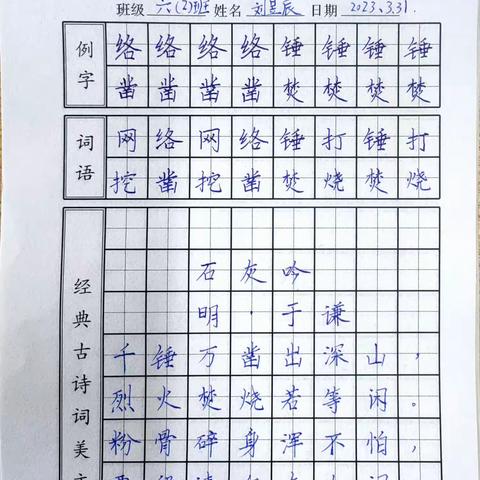 班级 六(2)班 姓名 刘昱辰 日期 2023.3.31.
例字
络 络 络 络 锤 锤 锤 锤
凿 凿 凿 凿 焚 焚 焚 焚
词语
网 络 网 络 锤 打 锤 打
挖 凿 挖 凿 焚 烧 焚 烧
经典古诗词美文
石 灰 吟
明 · 于 谦
千 锤 万 凿 出 深 山 ，
烈 火 焚 烧 若 等 闲 。
粉 骨 碎 身 浑 不 怕 ，